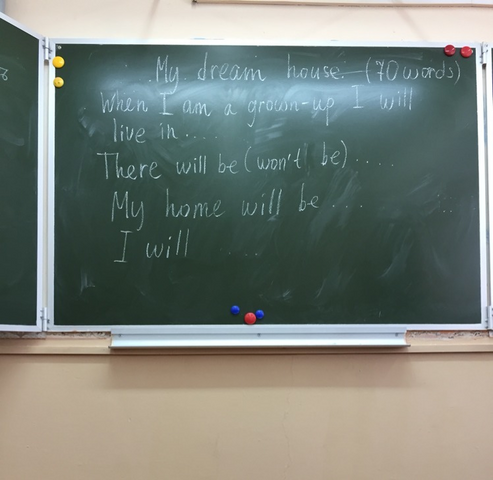 My dream house (70 words)
When I am a grown-up I will
live in....
There will be (won't be).....
My home will be...
I will ....